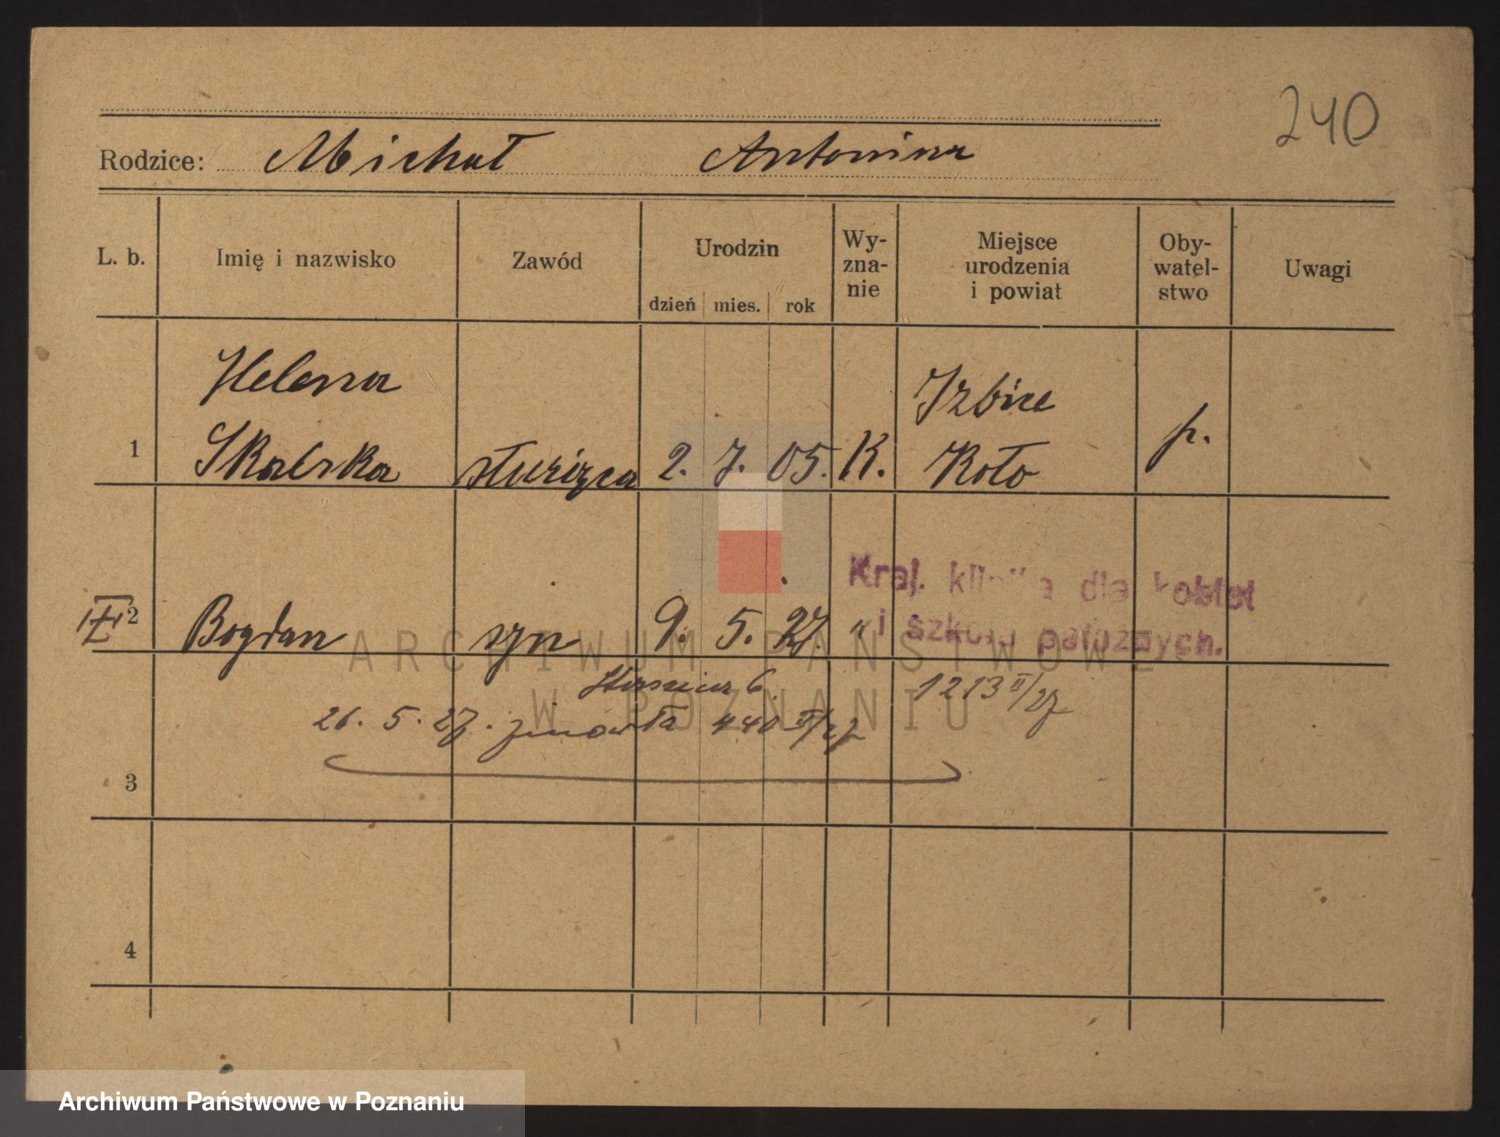 240
Rodzice: Michał Antonina
L. b. Imię i nazwisko Zawód Urodzin dzień mies. rok Wy-zna-nie Miejsce urodzenia i powiat Oby-watel-stwo Uwagi
Helena Izbice
1 Skalska służąca 2. 7. 05. K. Koło p.
Kraj. klinika dla kobiet
i szkoła położnych.
2 Bogdan syn 9. 5. 27. "
ARCHIWUM PAŃSTWOWE
W POZNANIU
6 1213 II/27
26. 5. 27. zmarła 440 II/27
3
4
Archiwum Państwowe w Poznaniu